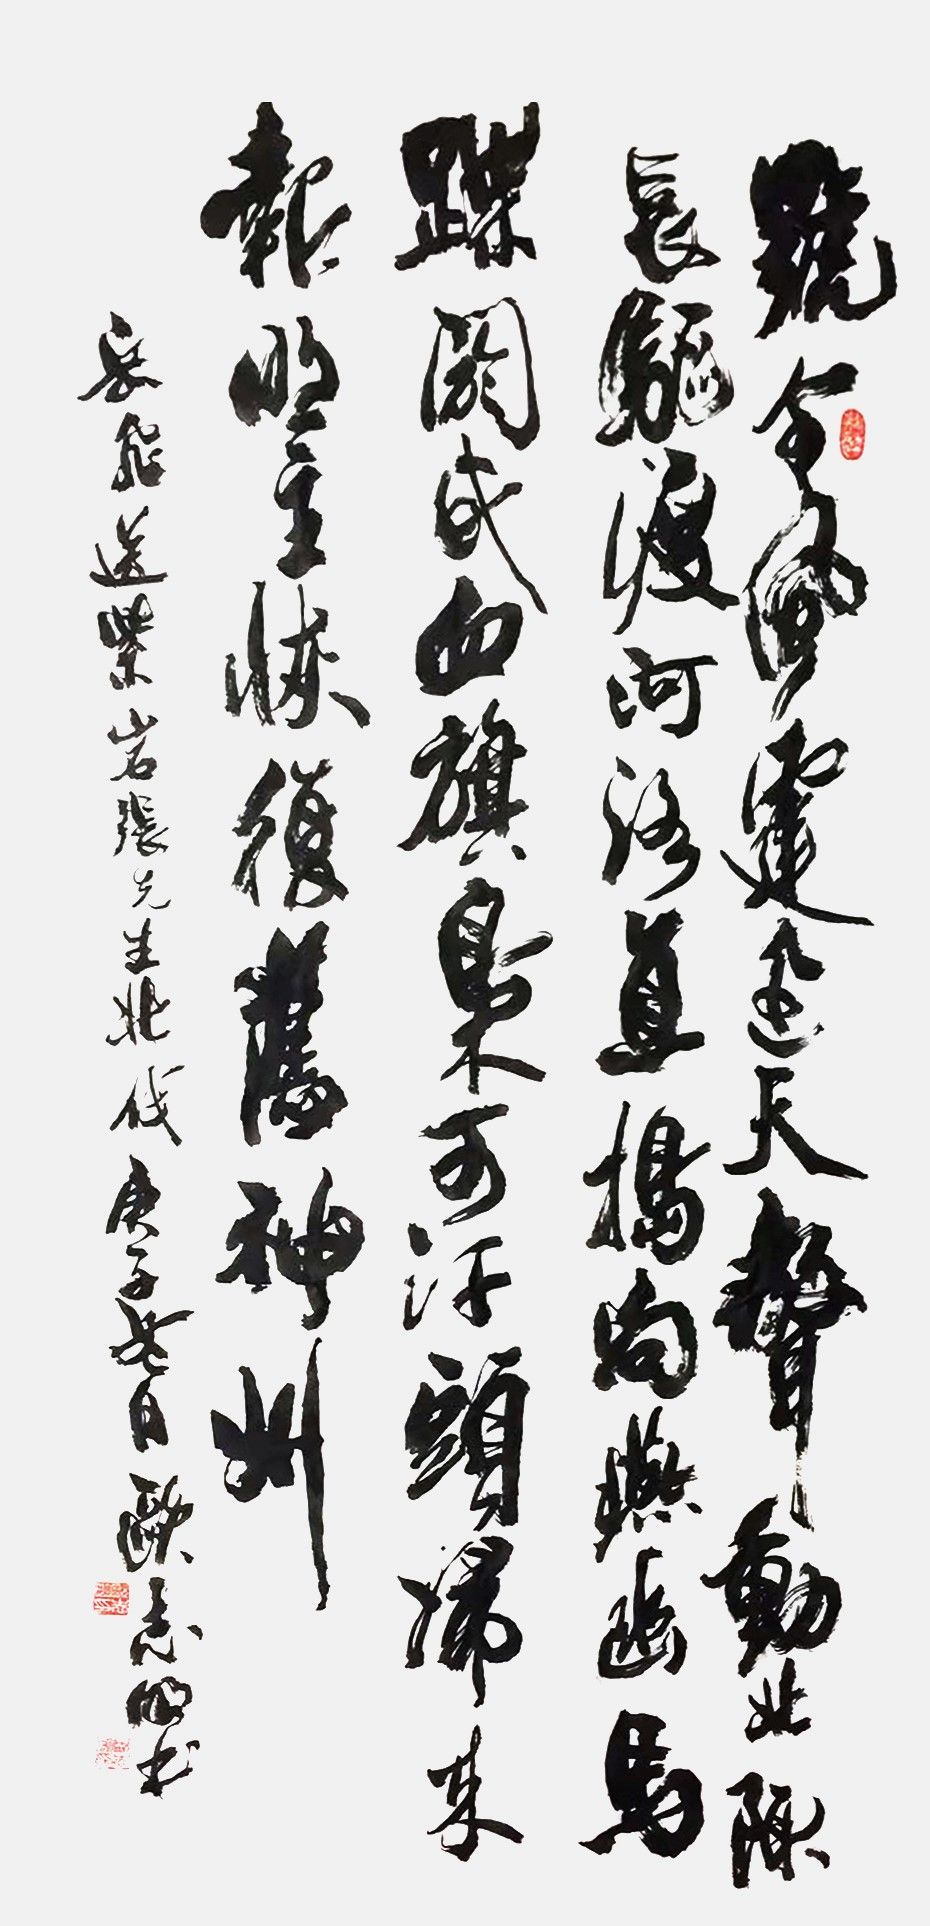 號令風霆迅天聲動北陬
長驅渡河洛直搗向燕幽馬
蹀閼氏血旗梟可汗頭歸來
報明主恢復舊神州
岳飛送紫岩張先生北伐庚子冬日歐志明书